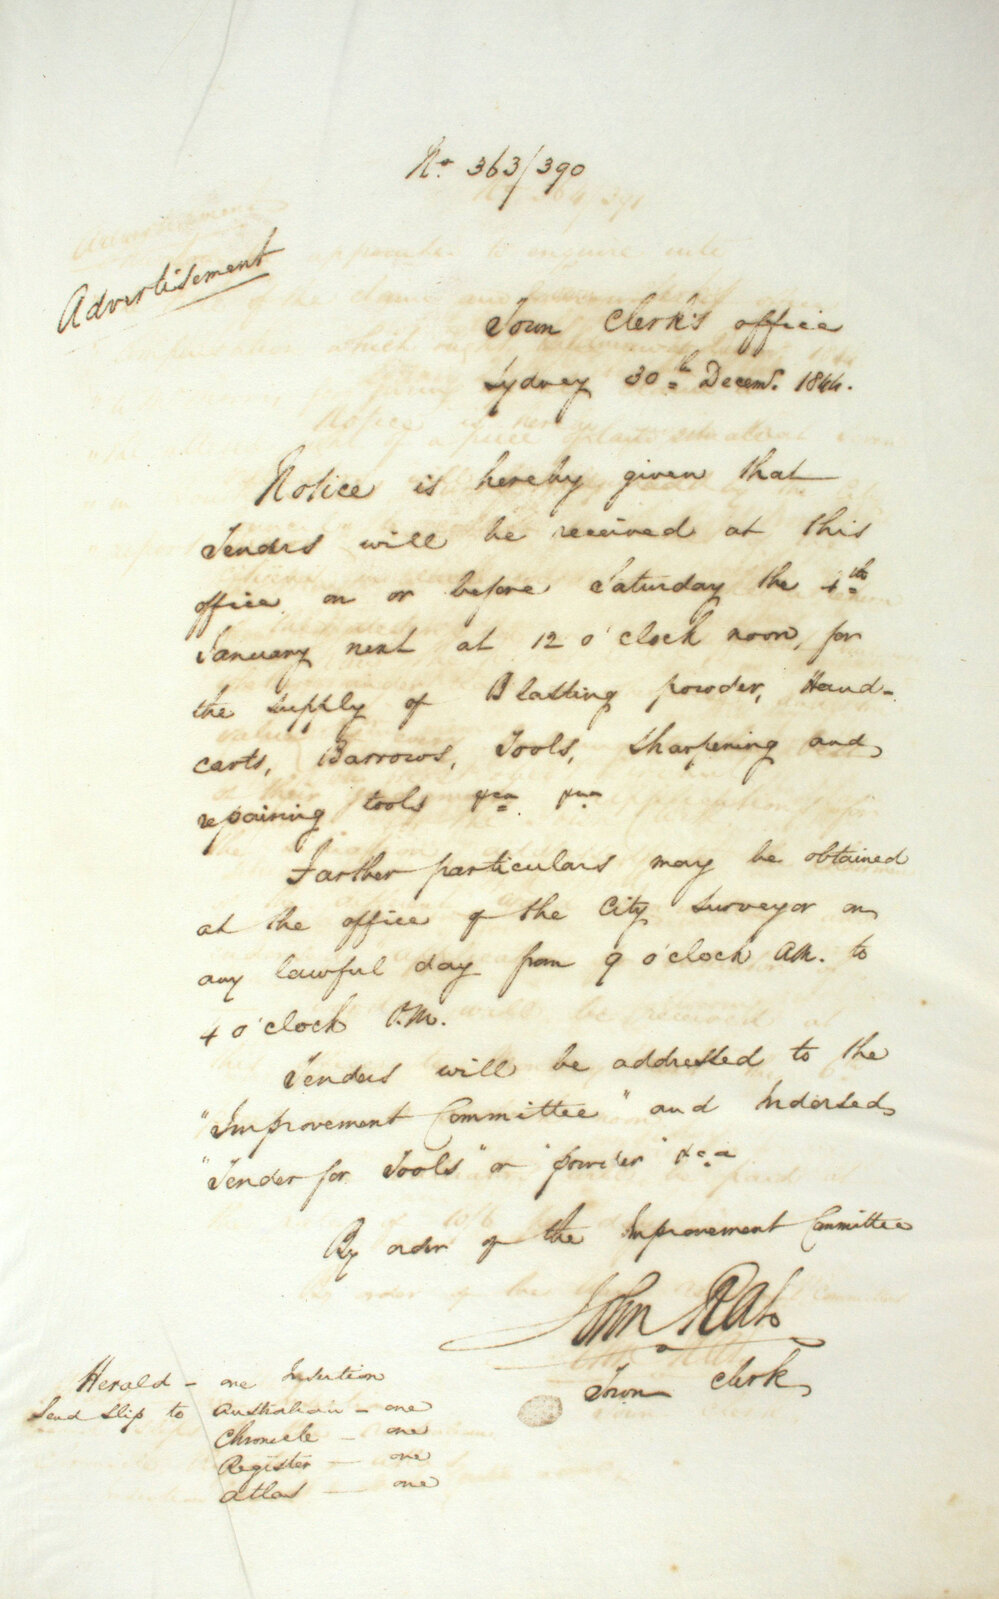 No. 363/390
Advertisement
Town Clerk's office
Sydney 30th Decemr. 1844.
Notice is hereby given that
Tenders will be received at this
office on or before Saturday the 4th
January next at 12 o'clock noon, for
the supply of Blasting powder, Hand-
carts, Barrows, Tools, Sharpening and
repairing tools &ca &ca
Farther particulars may be obtained
at the office of the City Surveyor on
any lawful day from 9 o'clock AM. to
4 o'clock P.M.
Tenders will be addressed to the
"Improvement Committee" and Indorsed
"Tender for Tools" or "powder" &ca
By order of the Improvement Committee
John
Town Clerk
Herald - one Insertion
Send Slip to Australian - one
Chronicle - one
Register - one
Atlas - one